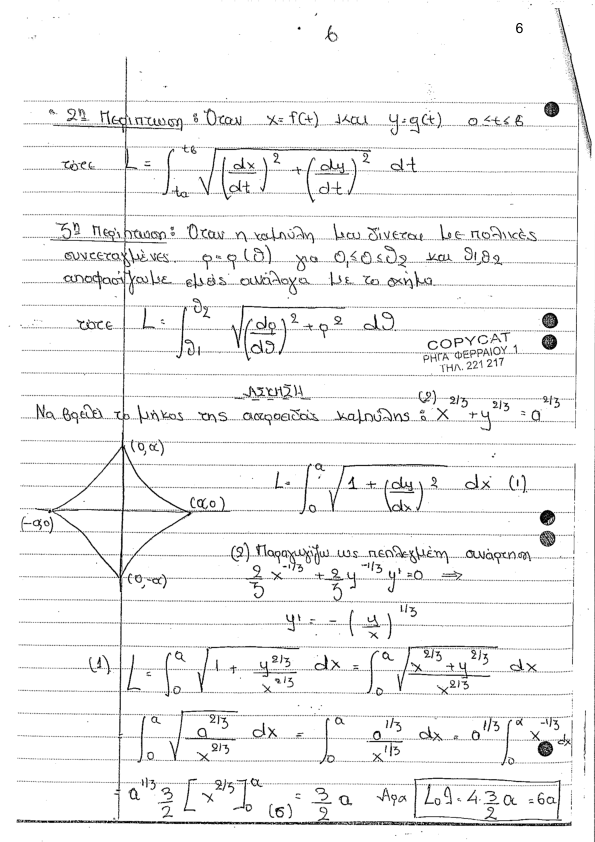 6
6
2η Περίπτωση : Όταν x=f(t) και y=g(t) a≤t≤b
τότε L = ∫_{ta}^{tb} √((dx/dt)^2 + (dy/dt)^2) dt
3η Περίπτωση: Όταν η καμπύλη μου δίνεται με πολικές
συντεταγμένες ρ=ρ(θ) για θ1≤θ≤θ2 και θ1,θ2
αποφασίζουμε εμείς ανάλογα με το σχήμα.
τότε L = ∫_{θ1}^{θ2} √((dρ/dθ)^2 + ρ^2) dθ
COPYCAT
ΡΗΓΑ ΦΕΡΡΑΙΟΥ 1
ΤΗΛ. 221 217
ΑΣΚΗΣΗ
Να βρεθεί το μήκος της αστροειδούς καμπύλης : (2) x^{2/3} + y^{2/3} = a^{2/3}
(0,α)
L = ∫_0^a √(1 + (dy/dx)^2) dx (1)
(-α,0) (α,0)
(2) Παραγωγίζω ως πεπλεγμένη συνάρτηση
(0,-α) 2/3 x^{-1/3} + 2/3 y^{-1/3} y' = 0 ⇒
y' = - (y/x)^{1/3}
(1) L = ∫_0^a √(1 + y^{2/3}/x^{2/3}) dx = ∫_0^a √((x^{2/3} + y^{2/3})/x^{2/3}) dx
= ∫_0^a √(a^{2/3}/x^{2/3}) dx = ∫_0^a a^{1/3}/x^{1/3} dx = a^{1/3} ∫_0^a x^{-1/3} dx
= a^{1/3} 3/2 [x^{2/3}]_0^a = 3/2 a Αρα Lολ = 4·3/2 a = 6a
(6)